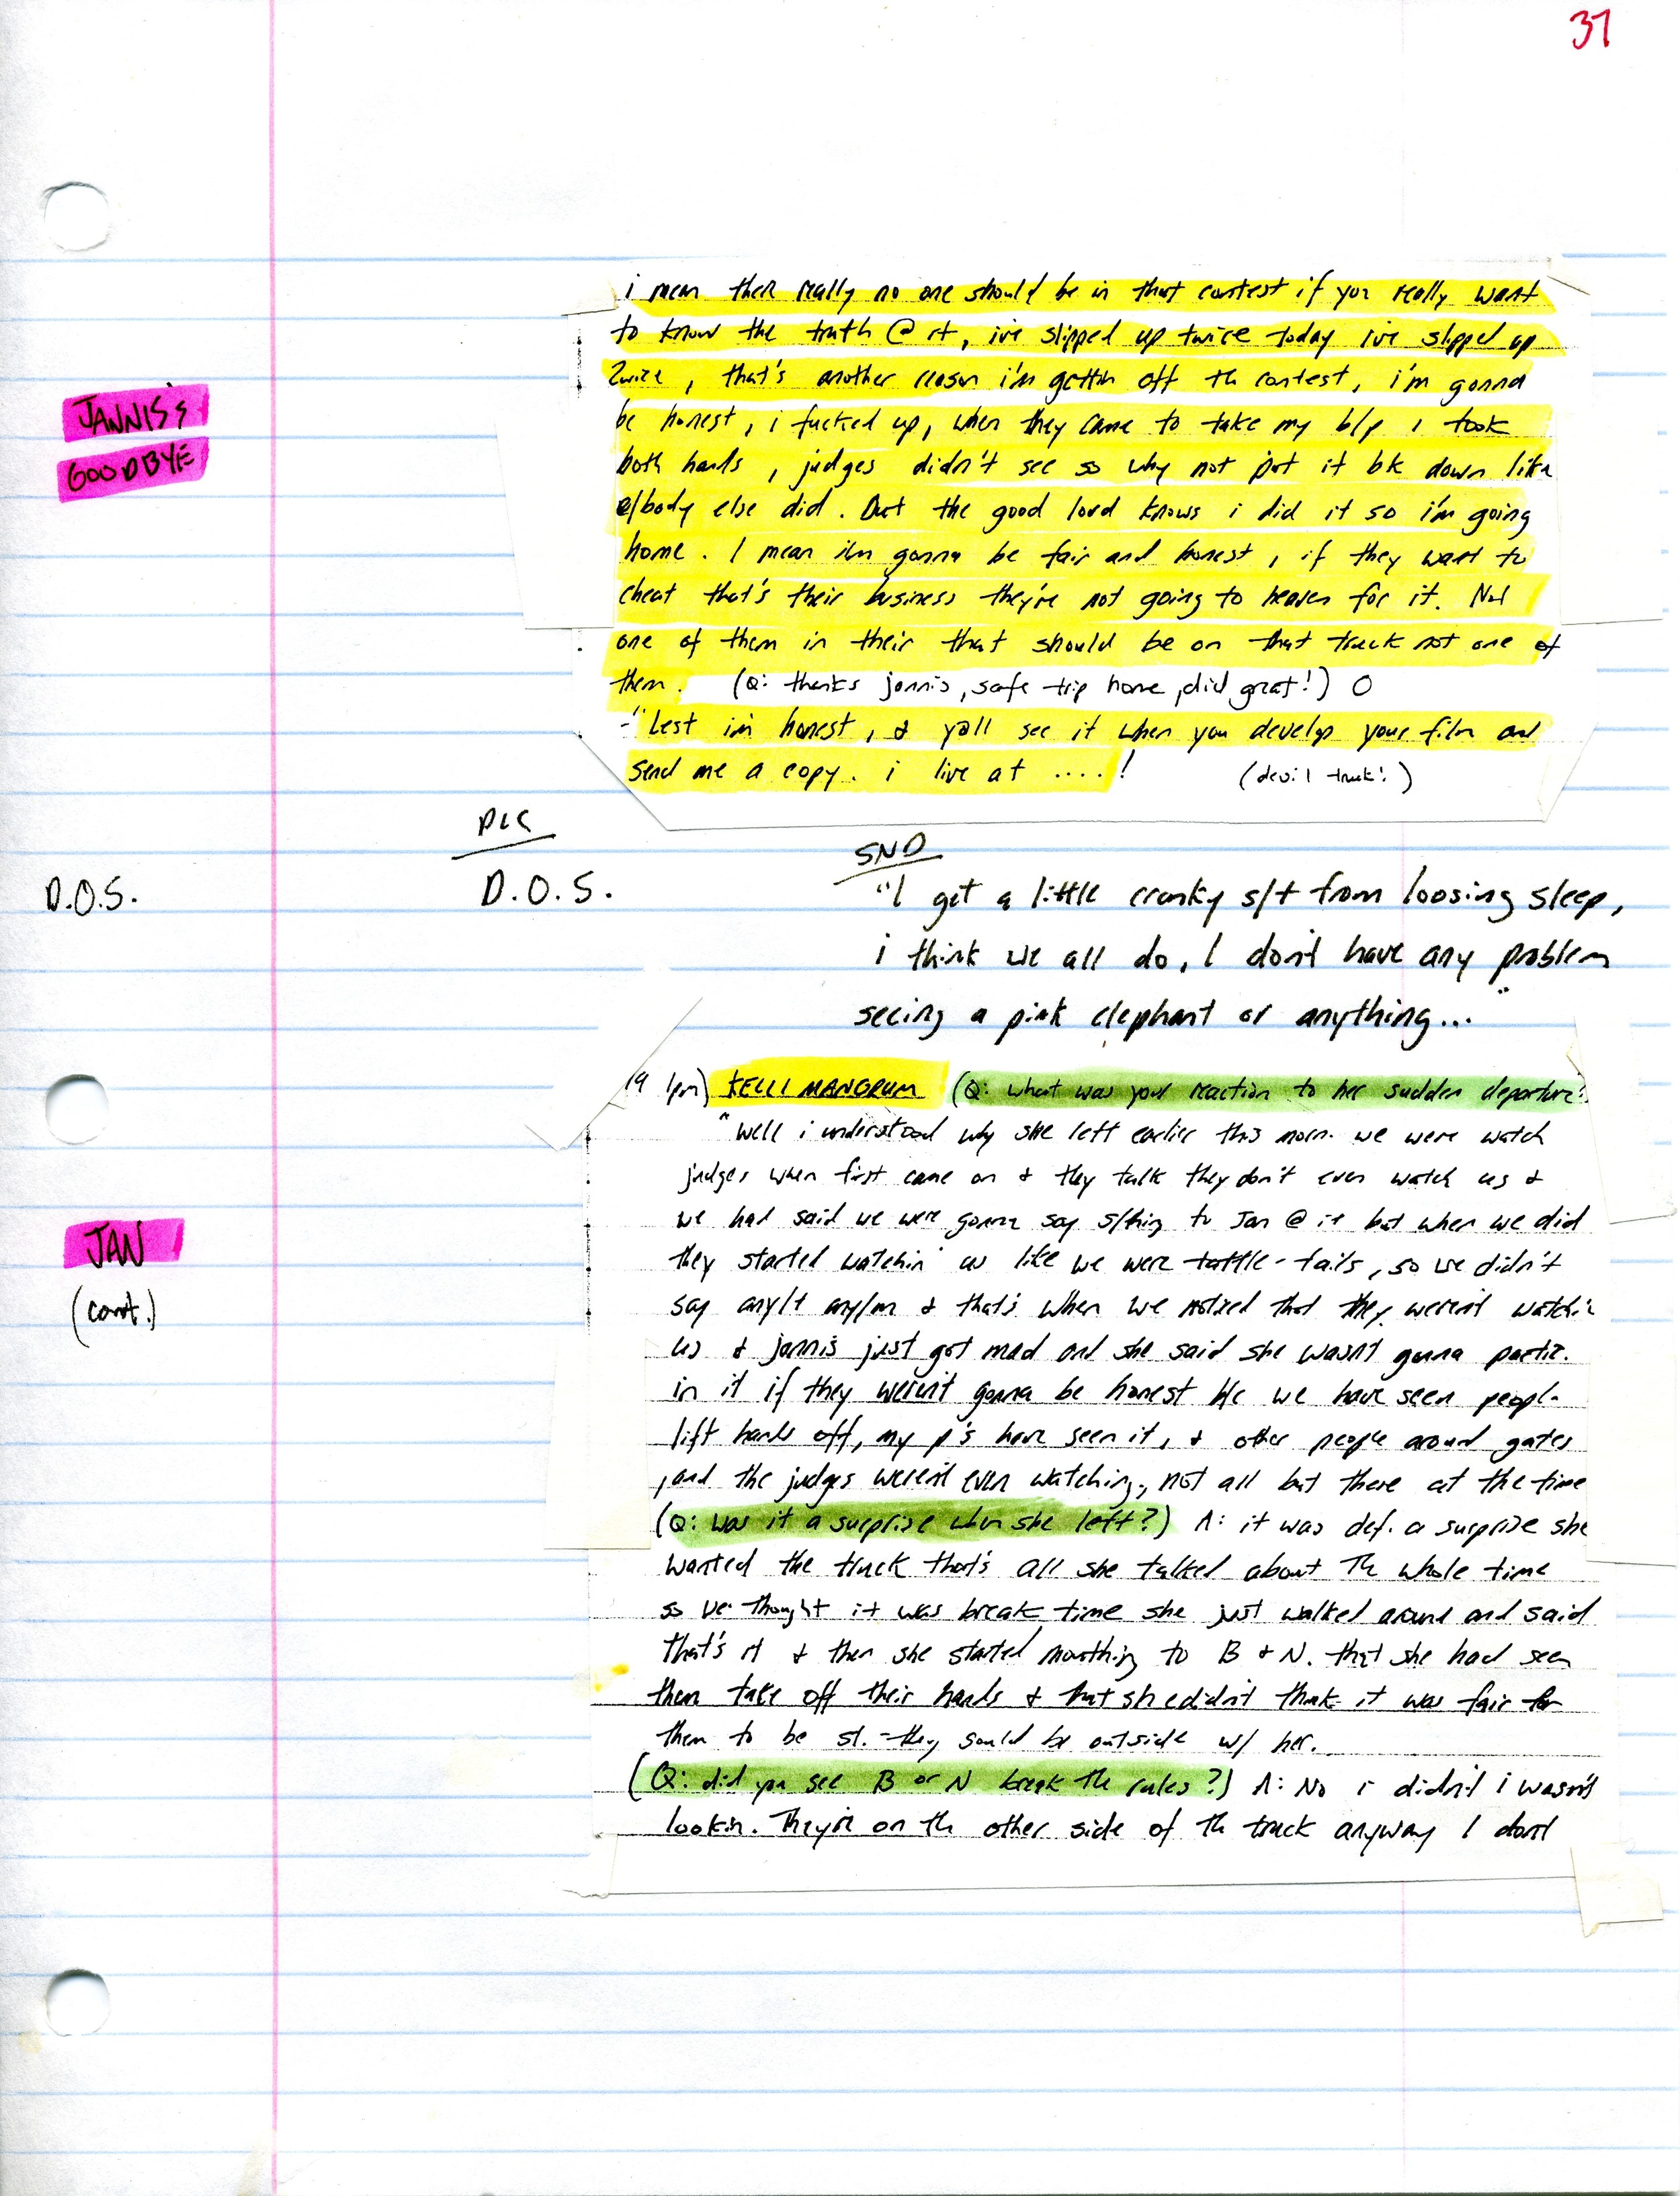 37
i mean then really no one should be in that contest if you really want
to know the truth @ it, i've slipped up twice today i've slipped up
twice, that's another reason i'm gettin off th contest, i'm gonna
be honest, i fucked up, when they came to take my b/p i took
both hands, judges didn't see so why not put it bk down like
e/body else did. But the good lord knows i did it so i'm going
home. I mean i'm gonna be fair and honest, if they want to
cheat that's their business they're not going to heaven for it. Not
one of them in their that should be on that truck not one of
them. (Q: thanks jannis, safe trip home, did great!) O
-"Lest i'm honest, & y'all see it when you develop your film and
send me a copy. i live at ....! (devil truck!)
JANNIS'S
GOODBYE
PIC
SND
D.O.S.
D.O.S.
"I get a little cranky s/t from loosing sleep,
i think we all do, I don't have any problem
seeing a pink elephant or anything..."
(9 1pm) KELLI MANGRUM (Q: what was your reaction to her sudden departure?
"well i understood why she left earlier this morn. we were watch
judges when first came on & they talk they don't even watch us &
we had said we were gonna say s/thing to Jan @ it but when we did
they started watchin us like we were tattle-tails, so we didn't
say any/t any/m & that's when we noticed that they weren't watchi
us & jannis just got mad and she said she wasn't gonna partic.
in it if they weren't gonna be honest b/c we have seen people
lift hands off, my p's have seen it, & other people around gates
, and the judges weren't even watching, not all but there at the time
(Q: was it a surprise when she left?) A: it was def. a surprise she
wanted the truck that's all she talked about th whole time
so we thought it was break time she just walked around and said
that's it & then she started mouthing to B & N. that she had seen
them take off their hands & that she didn't think it was fair for
them to be st. - they sould be outside w/ her.
(Q: did you see B or N break the rules?) A: No i didn't i wasn't
lookin. They're on th other side of th truck anyway I don't
JAN
(cont.)